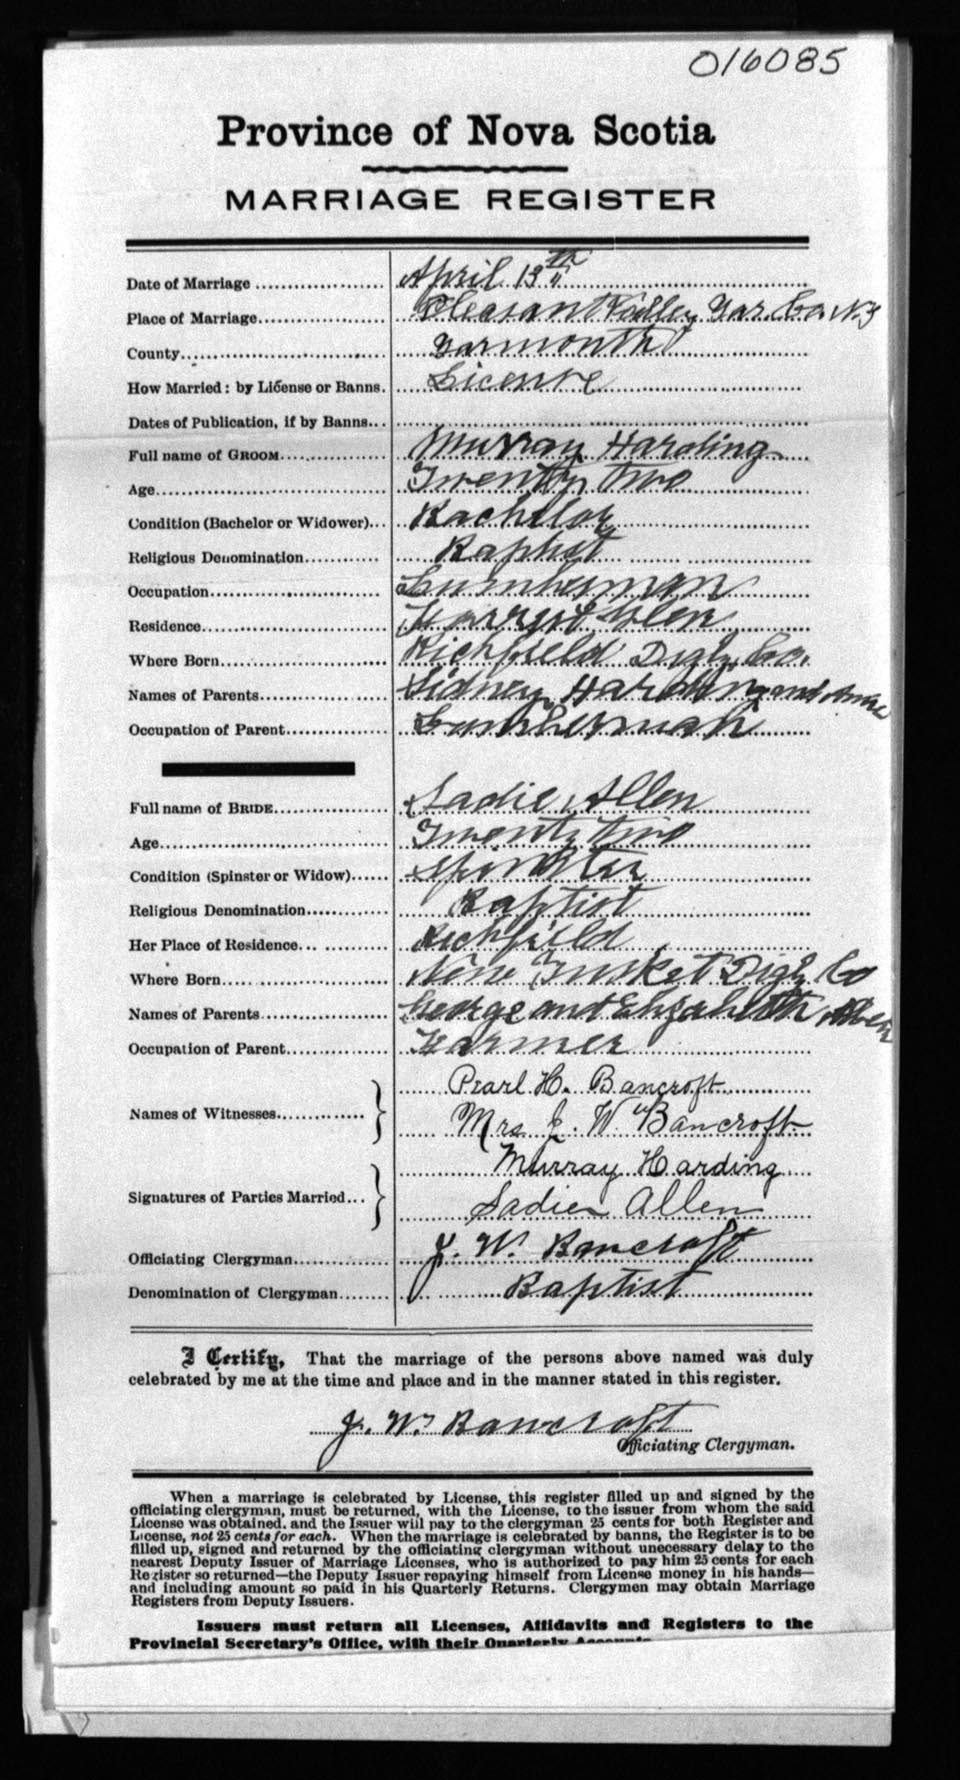 016085
Province of Nova Scotia
MARRIAGE REGISTER
Date of Marriage April 13th
Place of Marriage Pleasant Valley Yar. Co. N.S
County Yarmouth
How Married: by License or Banns. License
Dates of Publication, if by Banns
Full name of GROOM Murray Harding
Age Twenty two
Condition (Bachelor or Widower) Bachelor
Religious Denomination Baptist
Occupation Lumberman
Residence
Where Born Richfield Digby Co.
Names of Parents Sidney Harding and
Occupation of Parent Lumberman
Full name of BRIDE Sadie Allen
Age Twenty two
Condition (Spinster or Widow) Spinster
Religious Denomination Baptist
Her Place of Residence Richfield
Where Born New Tusket Digby Co
Names of Parents George and Elizabeth Allen
Occupation of Parent Farmer
Names of Witnesses Pearl H. Bancroft
Mrs J. W. Bancroft
Signatures of Parties Married Murray Harding
Sadie Allen
Officiating Clergyman J. W. Bancroft
Denomination of Clergyman Baptist
I Certify, That the marriage of the persons above named was duly
celebrated by me at the time and place and in the manner stated in this register.
J. W. Bancroft
Officiating Clergyman.
When a marriage is celebrated by License, this register filled up and signed by the
officiating clergyman, must be returned, with the License, to the issuer from whom the said
License was obtained, and the Issuer will pay to the clergyman 25 cents for both Register and
License, not 25 cents for each. When the marriage is celebrated by banns, the Register is to be
filled up, signed and returned by the officiating clergyman without unecessary delay to the
nearest Deputy Issuer of Marriage Licenses, who is authorized to pay him 25 cents for each
Register so returned—the Deputy Issuer repaying himself from License money in his hands—
and including amount so paid in his Quarterly Returns. Clergymen may obtain Marriage
Registers from Deputy Issuers.
Issuers must return all Licenses, Affidavits and Registers to the
Provincial Secretary's Office, with their Quarterly Accounts